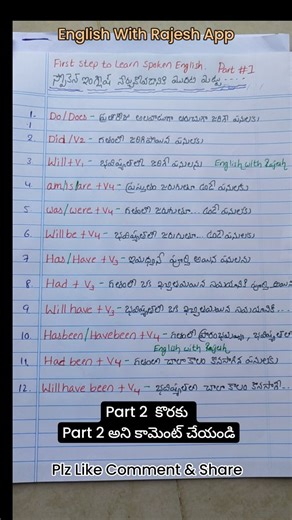 English With Rajesh App
First step to Learn Spoken English. Part #1
స్పోకెన్ ఇంగ్లీష్ నేర్చుకోవడానికి మొదటి మెట్టు....
1. Do/Does - ప్రతిరోజు అలవాటుగా జరిగే పనులకు
2. Did/V2 - గతంలో జరిగిపోయిన పనులకు
3. Will+V1 - భవిష్యత్ లో జరిగే పనులకు English with Rajesh
4. am/is/are + V4 - ప్రస్తుతం జరుగుతూ ఉండే పనులకు
5. was/were + V4 - గతంలో జరుగుతూ... ఉండే పనులకు
6. Will be + V4 - భవిష్యత్ లో జరుగుతూ ఉండే పనులకు
7. Has/Have + V3 - ఇప్పుడే పూర్తి అయిన పనులకు
8. Had + V3 - గతంలో ఒక
9. Will have + V3 - భవిష్యత్ లో ఒక
10. Hasbeen/Havebeen + V4 - గతంలో
English with Rajesh
11. Had been + V4 - గతంలో చాలా కాలం కొనసాగిన పనులకు
12. Will have been + V4 - భవిష్యత్ లో చాలా కాలం
Part 2 కొరకు
Part 2 అని కామెంట్ చేయండి
Plz Like Comment & Share